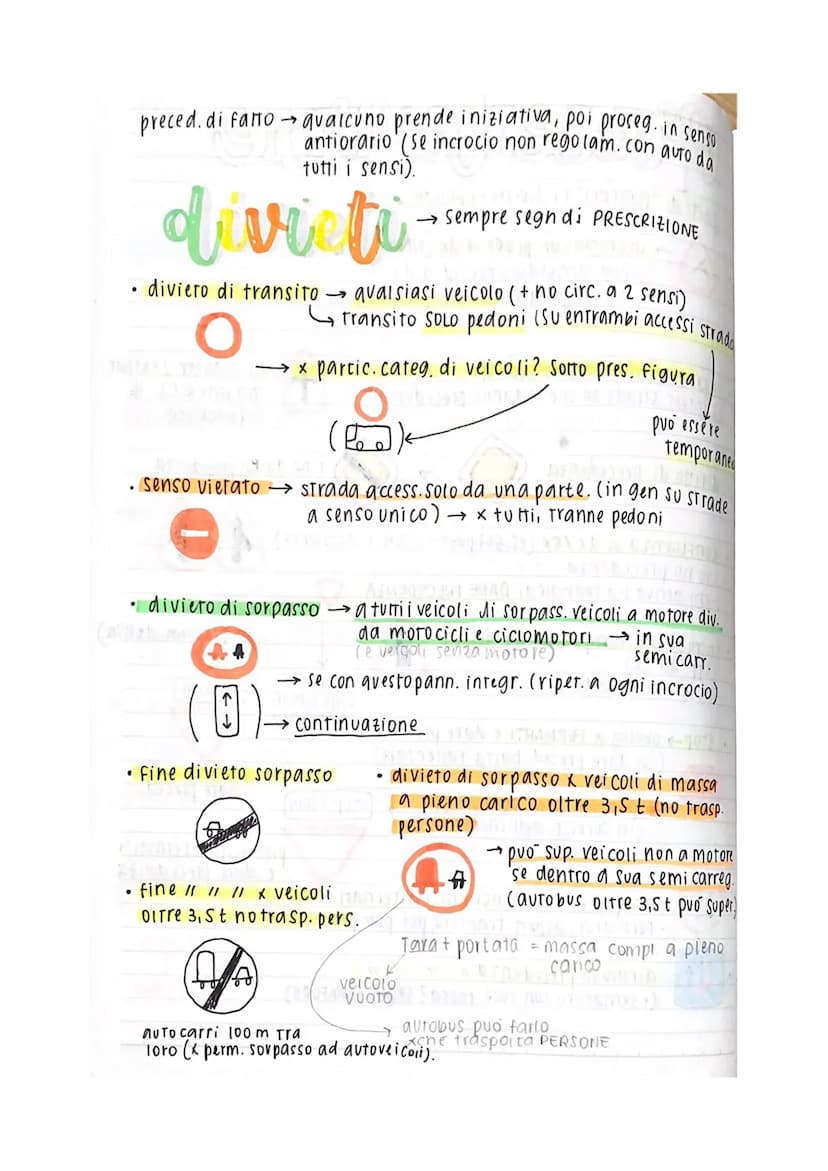 preced. di fatto → qualcuno prende iniziativa, poi proceg. in senso
antiorario (se incrocio non regolam. con auto da
tutti i sensi).
divieti → sempre segn di PRESCRIZIONE
• divieto di transito → qualsiasi veicolo (+ no circ. a 2 sensi)
↳ transito SOLO pedoni (su entrambi accessi strada
→ x partic. categ. di veicoli? sotto pres. figura
può essere
temporaneo
• senso vietato → strada access. solo da una parte. (in gen su strade
a senso unico) → x tutti, tranne pedoni
• divieto di sorpasso → a tutti i veicoli di sorpass. veicoli a motore div.
da motocicli e ciclomotori → in sua
(e veicoli senza motore) semicarr.
→ se con questo pann. integr. (ripet. a ogni incrocio)
→ continuazione
• fine divieto sorpasso
• divieto di sorpasso x veicoli di massa
a pieno carico oltre 3,5 t (no trasp.
persone)
→ può sup. veicoli non a motore
se dentro a sua semicarreg.
(autobus oltre 3,5t può super.)
• fine // // // x veicoli
oltre 3,5t no trasp. pers.
Tara + portata = massa compl a pieno
carico
veicolo
vuoto
autobus può farlo
xche trasporta PERSONE
autocarri 100 m tra
loro (x perm. sorpasso ad autoveicoli).